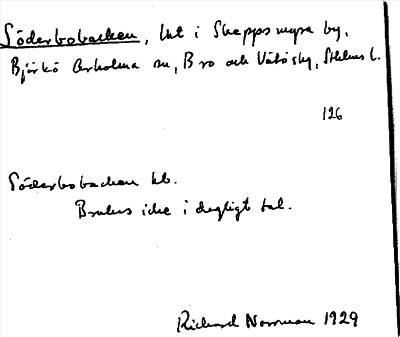 Söderbobacken, lht i Skeppsmyra by,
Björkö Arholma sn, Bro och Vätö skg, Sthlms l.
126
Söderbobacken kb.
Brukas icke i dagligt tal.
Richard Norrman 1929